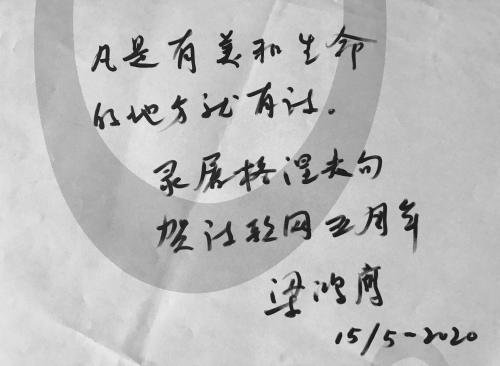 凡是有美和生命
的地方就有诗。
录屠格涅夫句
贺诗歌网五周年
梁鸿鹰
15/5-2020